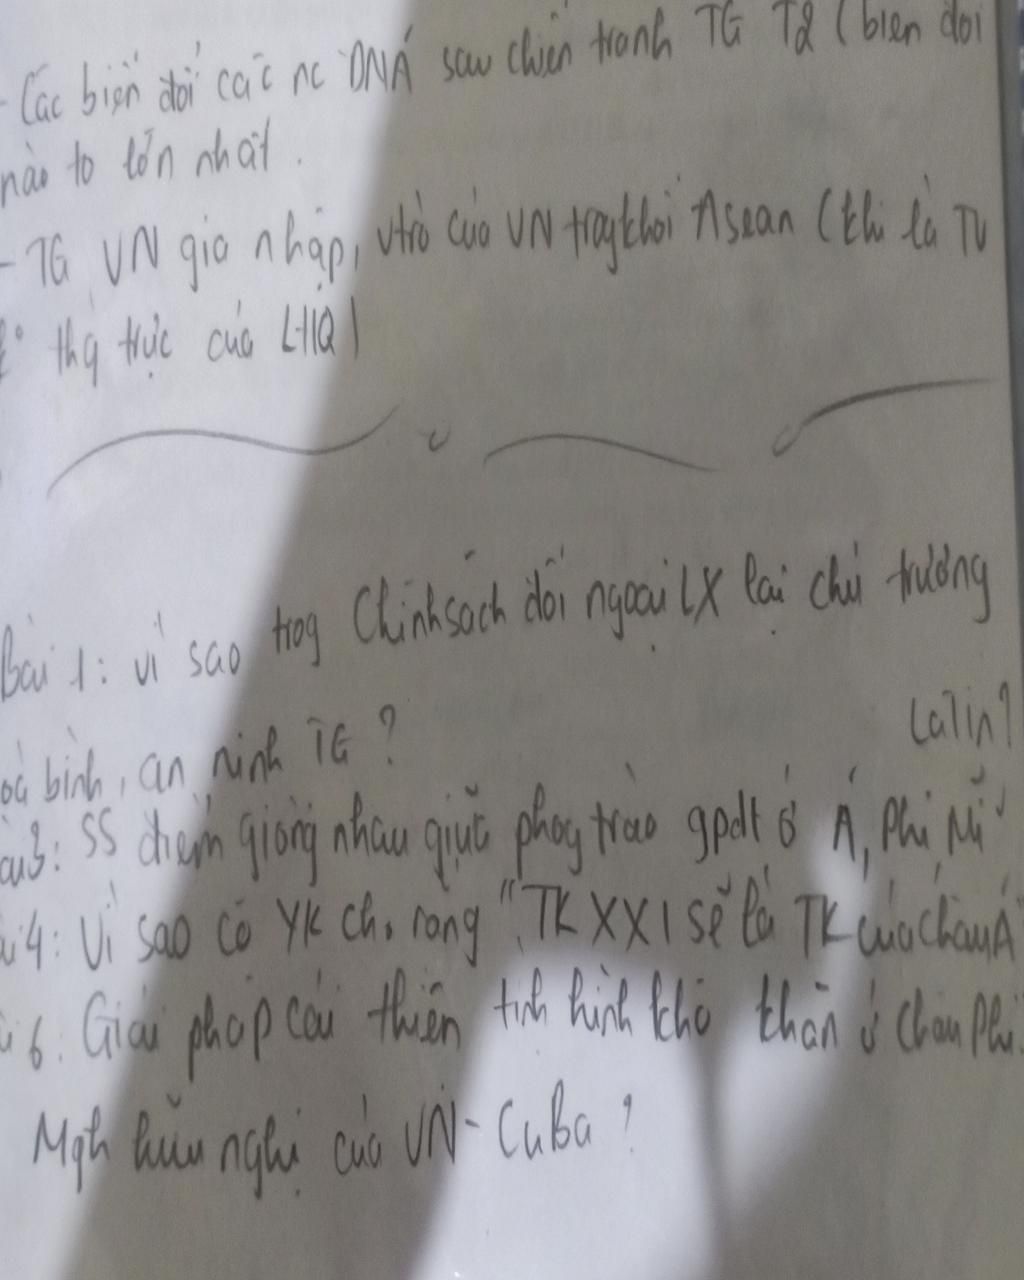 - Các biến đổi các nc ĐNÁ sau chiến tranh TG T2 (biến đổi
nào to lớn nhất.
- TG VN gia nhập, vtrò của VN trog khối Asean (thi là TV
thg trực của LHQ)
Bài 1: vì sao trog Chính sách đối ngoại LX lại chủ trương
oà bình, an ninh TG?
Latin?
âu3: SS điểm giống nhau giữa phog trào gpdt ở Á, Phi, Mĩ
u4: Vì sao có YK ch. rằng "TK XXI sẽ là TK của châu Á"
u6: Giải pháp cải thiện tình hình khó khăn ở Châu Phi.
Mqh hữu nghị của VN-CuBa?